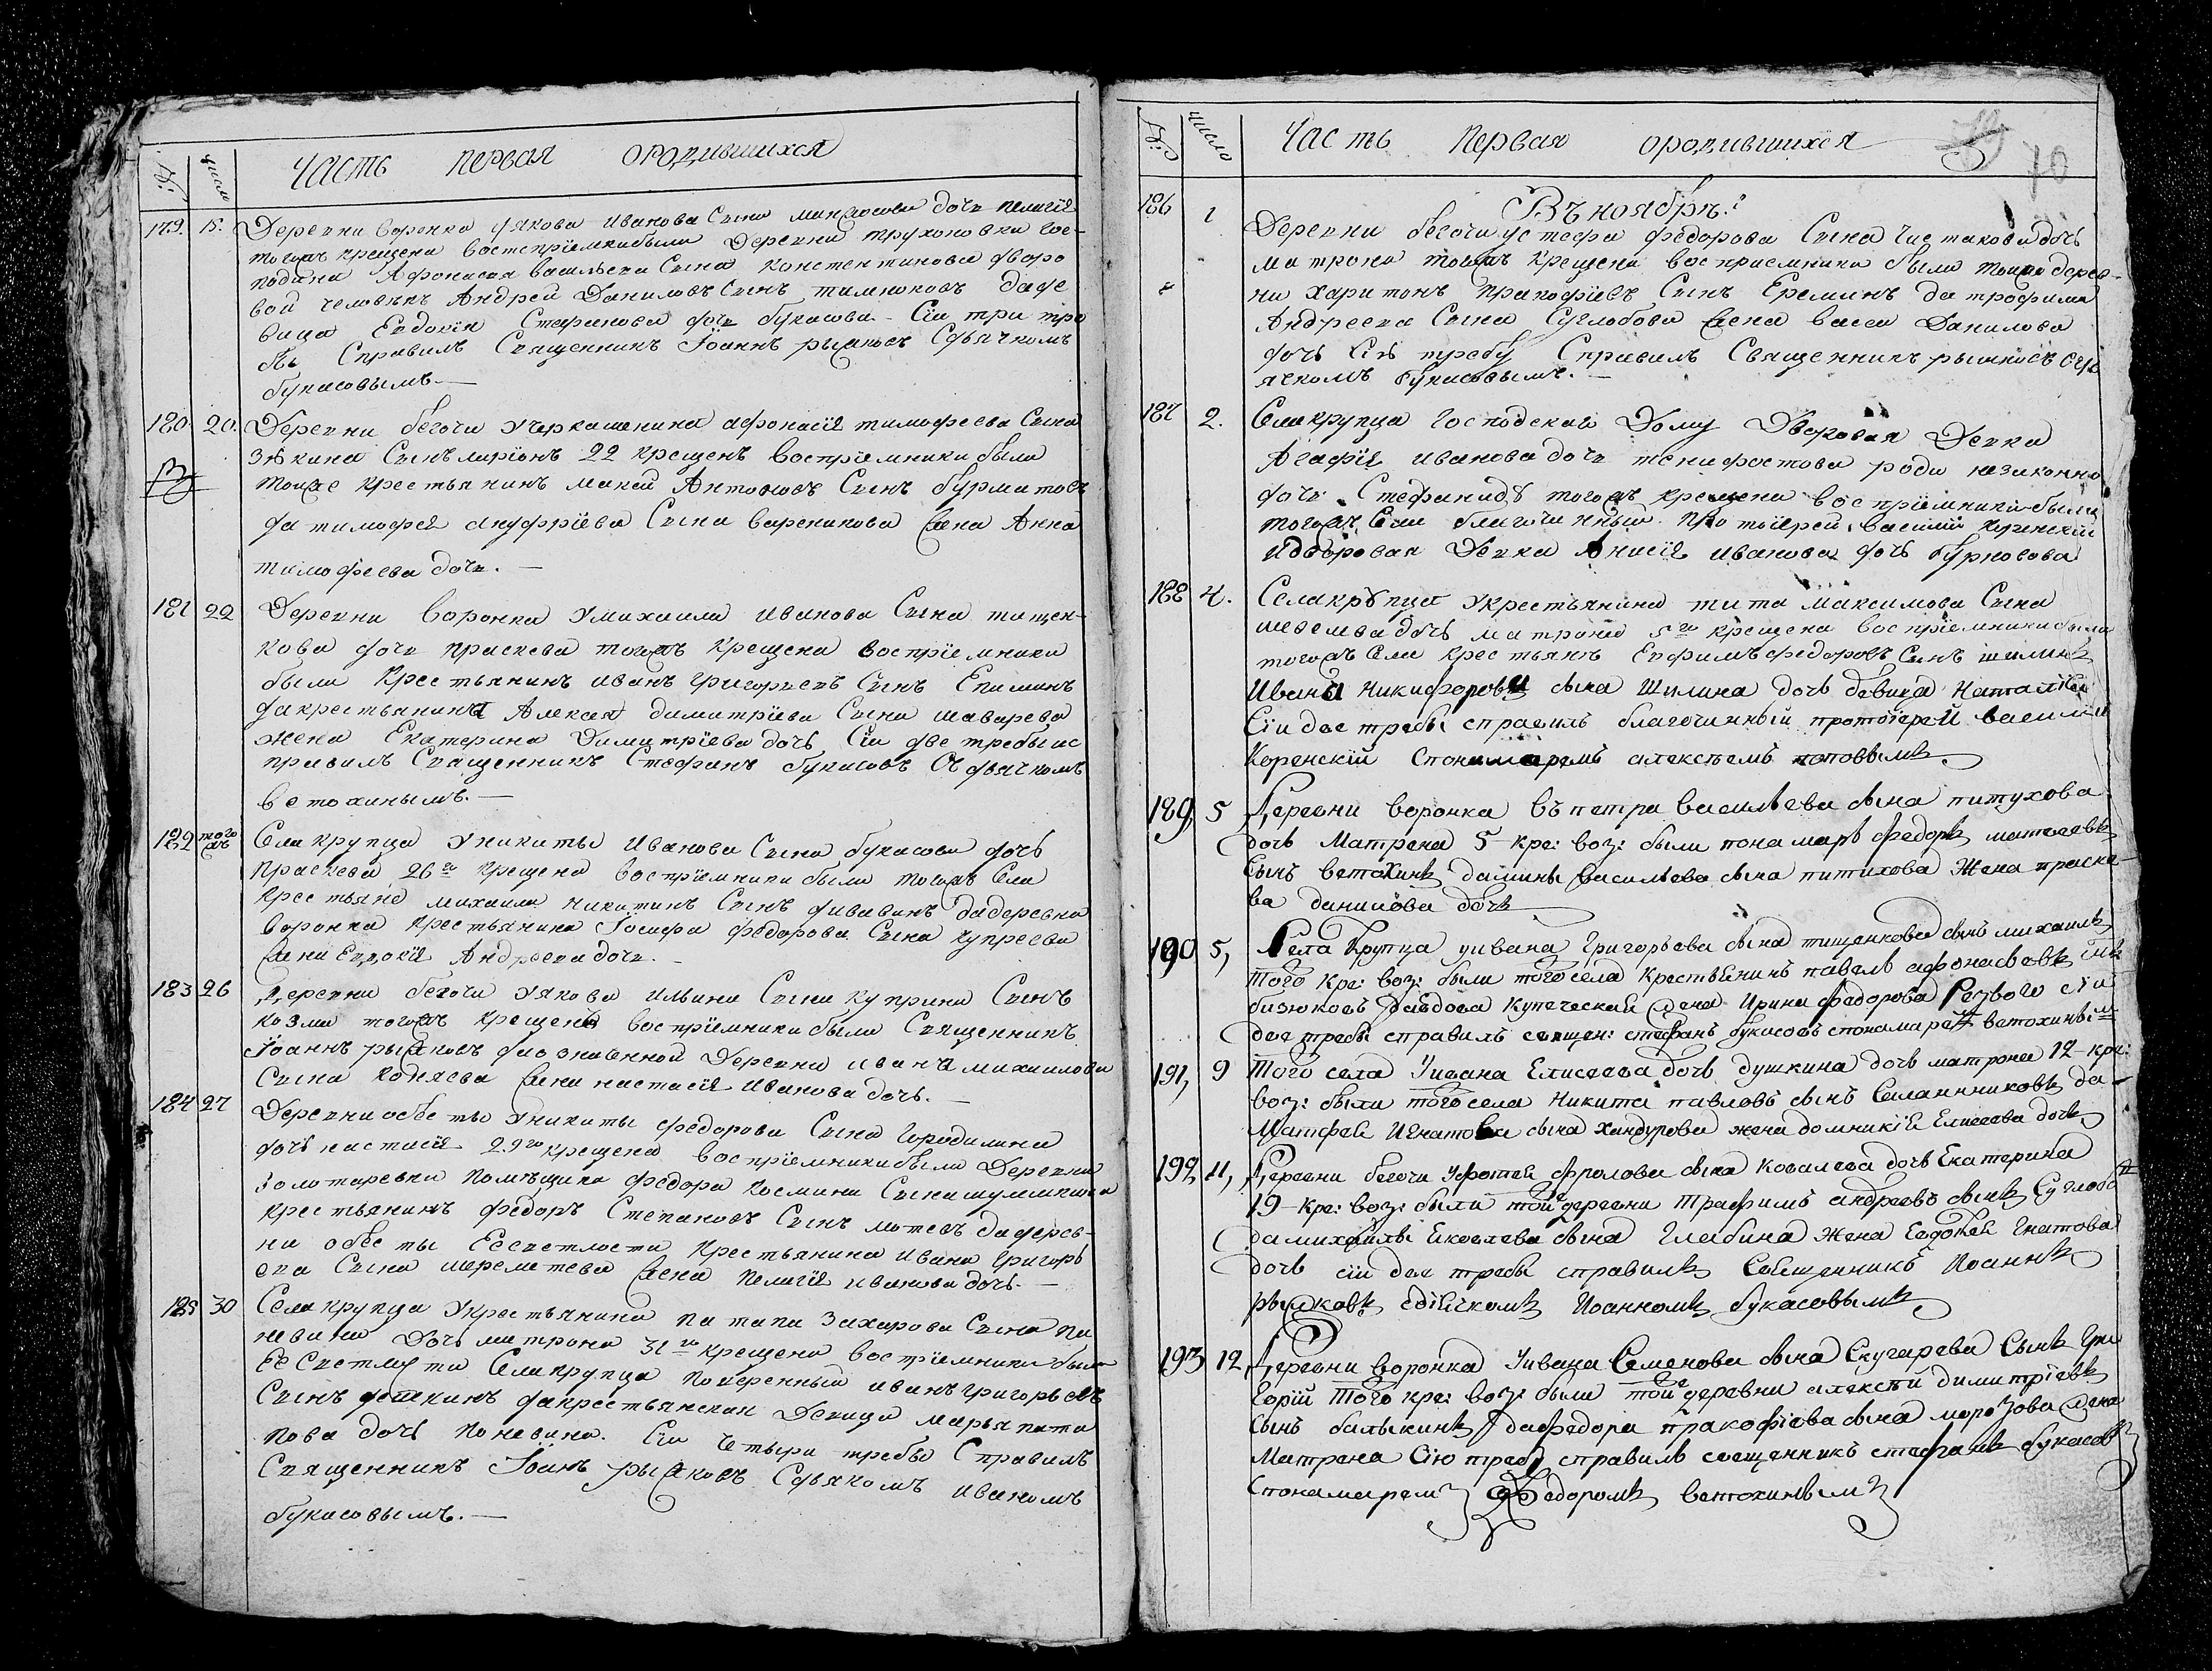 №: число Часть первая ородившихся
179. 15. Деревни воронка уякова иванова Сына дочь пелагiя
тогожъ крещена восприемникибыли Деревни трухоновки гос-
подина Афонасия васильева Сына констентинова дворо
вой человекъ Андреи Даниловъ Сынъ тимиховъ даде
вица Евдокiя Стефанова дочь букасова. Сiи три тре
бы Справилъ Священникъ Iоаннъ рыжковъ Сдьячкомъ
букасовымъ.
180. 20. Деревни бегочи Учеркашенина афонасiя тимофеева Сына
зыкина Сынъ ларiонъ 22 крещенъ восприемники были
тояже крестьянинъ Антоновъ Сынъ бурматовъ
да тимофея ануфрiева Сына вареникова жена Анна
тимофеева дочь.
181 22 Деревни воронка Умихаила иванова Сына тищен-
кова дочь праскева тогожъ крещена восприемники
были Крестьянинъ иванъ григорьевъ Сынъ Епишинъ
дакрестьянина Алексея димитрiева Сына шаварева
жена Екатерина Димитрiева дочь Сiи две требы ис
правилъ Священникъ Стефанъ букасовъ Сдьячкомъ
ветохинымъ.
182 того жъ Села крупца Уникиты Иванова Сына букасова дочь
праскева 26го крещена восприемники были тогожъ Села
Крестьяне михаила никитинъ Сынъ дадеревни
воронка Крестьянина Iосифа федорова Сына купреева
жена Евдокiя Андреева дочь.
183 26 Деревни бегочи Уякова ильина Сына куприна Сынъ
козма тогожъ крещенъ восприемники были Священникъ
Iоаннъ рыжковъ даозначенной Деревни ивана михаилова
Сына коняева жена настасiя Иванова дочь.
184 27 Деревни обесты Уникиты федорова Сына Городилина
дочь настасiя 29го крещена восприемникибыли Деревни
золотаревки помещика федора космина Сына
крестьянинъ федоръ Степановъ Сынъ мотевъ дадерев-
ни обесты Еесветлости Крестьянина ивана григорь
ева Сына шереметева жена пелагiя иванова дочь.
185 30 Села крупца Укрестьянина патапа Захарова Сына па
невина Дочь матрона 31го крещена восприемники были
Села крупца поверенный иванъ григорьевъ
Сынъ дакрестьянская Девица марья пата
пова дочь поневина. Сiи четыри требы Справилъ
Священникъ Iоанъ рыжковъ Сдьякомъ иваномъ
букасовымъ.
№: число Часть Первая ородившихся 70
Въ ноябре:
186 1 Деревни бегочи устефа федорова Сына Чистакова дочь
матрона тогожъ крещена восприемники были тояже дерев-
ни харитонъ пракофiевъ Сынъ Ереминъ да трофима
Андреева Сына Суглобова жена васса Данилова
дочь Сiю требу Справилъ Священникъ рыжковъ Сдь
ячкомъ букасовымъ.
187 2. Села крупца Господскаго Дому Дворовая Девка
Агафiя иванова дочь роди незаконно
дочь Стефаниду тогожъ крещена восприемники были
тогожъ Села благочинный протоiерей василий Коренскiй
идворовая Девка Анисiя иванова дочь бурносова
188 4. Села крупца Укрестьянина тита максимова Сына
дочь матрона 5го крещена восприемникибыли
тогожъ Села крестьянъ Евфимъ федоровъ Сынъ шилинъ
Ивана Никифорова сына Шилина дочь девица Наталiя
Сiи две требы справилъ благочинный протоiерей василiй
Коренскiй Спономаремъ алексеемъ поповымъ
189, 5 Деревни воронка въ петра васильева сына питухова
дочь Матрена 5 кре: воз: были пономарь федоръ матвеевъ
Сынъ ветохинъ дамины васильева сына питихова Жена праске-
ва данилова дочь
190 5, Села Крупца уивана Григорьева сына тищенкова сынъ михаилъ
Того кре: воз: были того села крестьянинъ павелъ афонасьевъ сынъ
бизюковъ Давдова купеческая жена Ирина федорова Резваго сiи
две требы справилъ священ: стефанъ букасовъ спонамаремъ ветохинымъ
191, 9 Того села Уивана Елисеева дочь душкина дочь матрона 12 кре:
воз: были того села Никита павловъ сынъ Селаниковъ да
Матфея Игнатова сына Хандурова жена домникiя Елисеева дочь
192, 11, Деревни бегочи Уфотея Фролова сына Ковалева дочь Екатерина
19 кре: воз: были той деревни Трафимъ андреевъ сынъ Суглобов
дамихаилы Яковлева сына Глабина Жена Евдокея Гнатова
дочь сiи две требы справилъ Священникъ Иоаннъ
рыжковъ сдiячкомъ Иоанномъ букасовымъ
193 12, Деревни воронка Уивана Семенова сына Скугарева Сынъ Гри
горiй Того кре: воз: были той деревни алексей димитрiевъ
Сынъ балыкинъ дафедора пракофiева сына морозова жена
Матрена Сiю требу справилъ священникъ стефанъ букасовъ
Спонамаремъ Федоромъ ветохинымъ